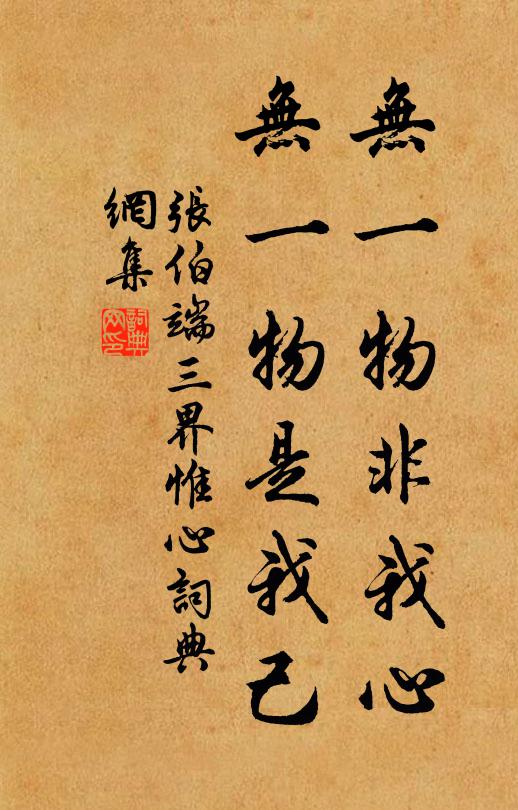 無一物非我心
無一物是我己
張伯端三界惟心詞典
網集
詞典
文印